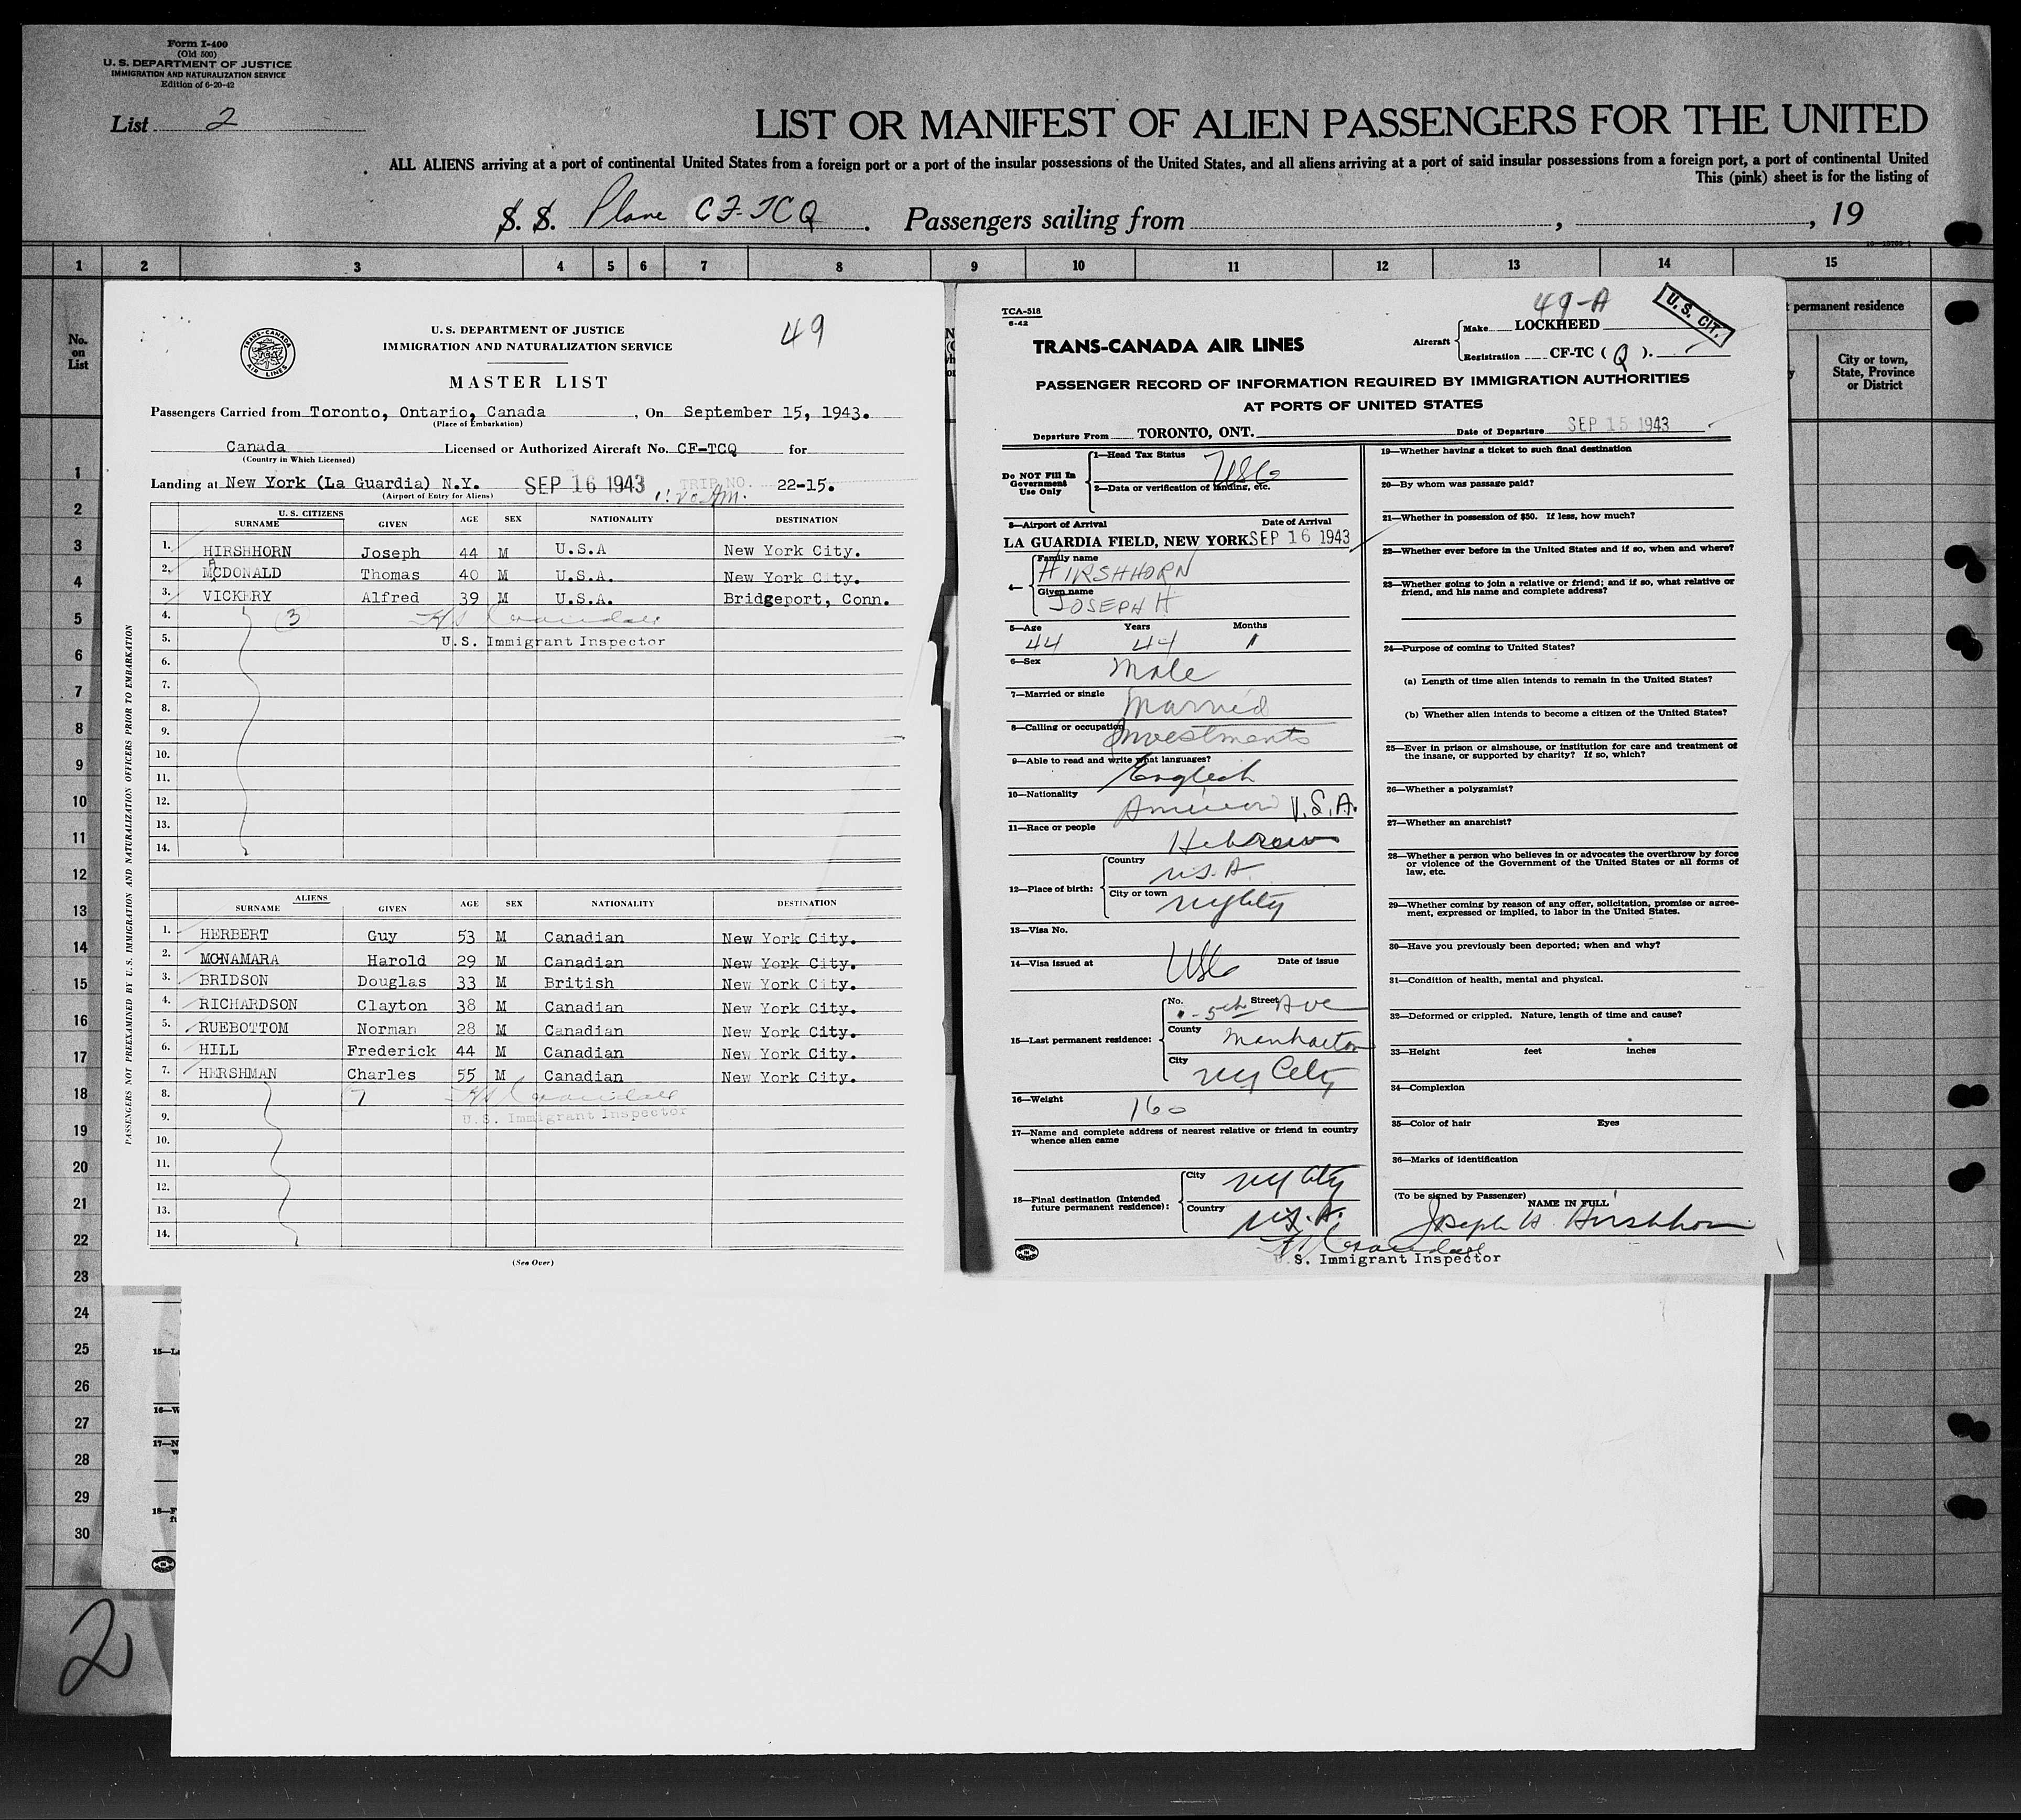 Form I-400
(Old 500)
U. S. DEPARTMENT OF JUSTICE
IMMIGRATION AND NATURALIZATION SERVICE
Edition of 6-20-42
List 2
LIST OR MANIFEST OF ALIEN PASSENGERS FOR THE UNITED
ALL ALIENS arriving at a port of continental United States from a foreign port or a port of the insular possessions of the United States, and all aliens arriving at a port of said insular possessions from a foreign port, a port of continental United
This (pink) sheet is for the listing of
S. S. Plane CF-TCQ. Passengers sailing from , , 19
1 2 3 4 5 6 7 8 9 10 11 12 13 14 15
No. on List
permanent residence
City or town, State, Province or District
1
2
3
4
5
6
7
8
9
10
11
12
13
14
15
16
17
18
19
20
21
22
23
24
25
26
27
28
29
30
2
49
TRANS-CANADA AIR LINES
U. S. DEPARTMENT OF JUSTICE
IMMIGRATION AND NATURALIZATION SERVICE
MASTER LIST
Passengers Carried from Toronto, Ontario, Canada, On September 15, 1943.
(Place of Embarkation)
Canada Licensed or Authorized Aircraft No. CF-TCQ for
(Country in Which Licensed)
Landing at New York (La Guardia) N.Y. SEP 16 1943 TRIP NO. 22-15.
(Airport of Entry for Aliens) 1:20 AM.
U.S. CITIZENS
SURNAME GIVEN AGE SEX NATIONALITY DESTINATION
1. HIRSHHORN Joseph 44 M U.S.A New York City.
2. McDONALD Thomas 40 M U.S.A. New York City.
3. VICKERY Alfred 39 M U.S.A. Bridgeport, Conn.
4. 3
5. U.S. Immigrant Inspector
6.
7.
8.
9.
10.
11.
12.
13.
14.
ALIENS
SURNAME GIVEN AGE SEX NATIONALITY DESTINATION
1. HERBERT Guy 53 M Canadian New York City.
2. MCNAMARA Harold 29 M Canadian New York City.
3. BRIDSON Douglas 33 M British New York City.
4. RICHARDSON Clayton 38 M Canadian New York City.
5. RUEBOTTOM Norman 28 M Canadian New York City.
6. HILL Frederick 44 M Canadian New York City.
7. HERSHMAN Charles 55 M Canadian New York City.
8. 7
9. U.S. Immigrant Inspector
10.
11.
12.
13.
14.
(See Over)
PASSENGERS NOT PREEXAMINED BY U.S. IMMIGRATION AND NATURALIZATION OFFICERS PRIOR TO EMBARKATION
TCA-518
6-42
49-A
U.S. CIT.
TRANS-CANADA AIR LINES
Aircraft Make LOCKHEED
Registration CF-TC ( Q ).
PASSENGER RECORD OF INFORMATION REQUIRED BY IMMIGRATION AUTHORITIES
AT PORTS OF UNITED STATES
Departure From TORONTO, ONT. Date of Departure SEP 15 1943
Do NOT Fill In Government Use Only
1—Head Tax Status USC
2—Data or verification of landing, etc.
3—Airport of Arrival Date of Arrival
LA GUARDIA FIELD, NEW YORK SEP 16 1943
4— Family name
HIRSHHORN
Given name
JOSEPH H
5—Age Years Months
44 44 1
6—Sex Male
7—Married or single Married
8—Calling or occupation Investments
9—Able to read and write what languages?
English
10—Nationality American U.S.A.
11—Race or people Hebrew
12—Place of birth: Country U.S.A.
City or town NY City
13—Visa No.
14—Visa issued at USC Date of issue
15—Last permanent residence: No. Street
- 5th Ave
County Manhattan
City NY City
16—Weight 160
17—Name and complete address of nearest relative or friend in country whence alien came
18—Final destination (Intended future permanent residence): City NY City
Country U.S.A.
U.S. Immigrant Inspector
19—Whether having a ticket to such final destination
20—By whom was passage paid?
21—Whether in possession of $50. If less, how much?
22—Whether ever before in the United States and if so, when and where?
23—Whether going to join a relative or friend; and if so, what relative or friend, and his name and complete address?
24—Purpose of coming to United States?
(a) Length of time alien intends to remain in the United States?
(b) Whether alien intends to become a citizen of the United States?
25—Ever in prison or almshouse, or institution for care and treatment of the insane, or supported by charity? If so, which?
26—Whether a polygamist?
27—Whether an anarchist?
28—Whether a person who believes in or advocates the overthrow by force or violence of the Government of the United States or all forms of law, etc.
29—Whether coming by reason of any offer, solicitation, promise or agreement, expressed or implied, to labor in the United States.
30—Have you previously been deported; when and why?
31—Condition of health, mental and physical.
32—Deformed or crippled. Nature, length of time and cause?
33—Height feet inches
34—Complexion
35—Color of hair Eyes
36—Marks of identification
(To be signed by Passenger) NAME IN FULL
Joseph H Hirshhorn